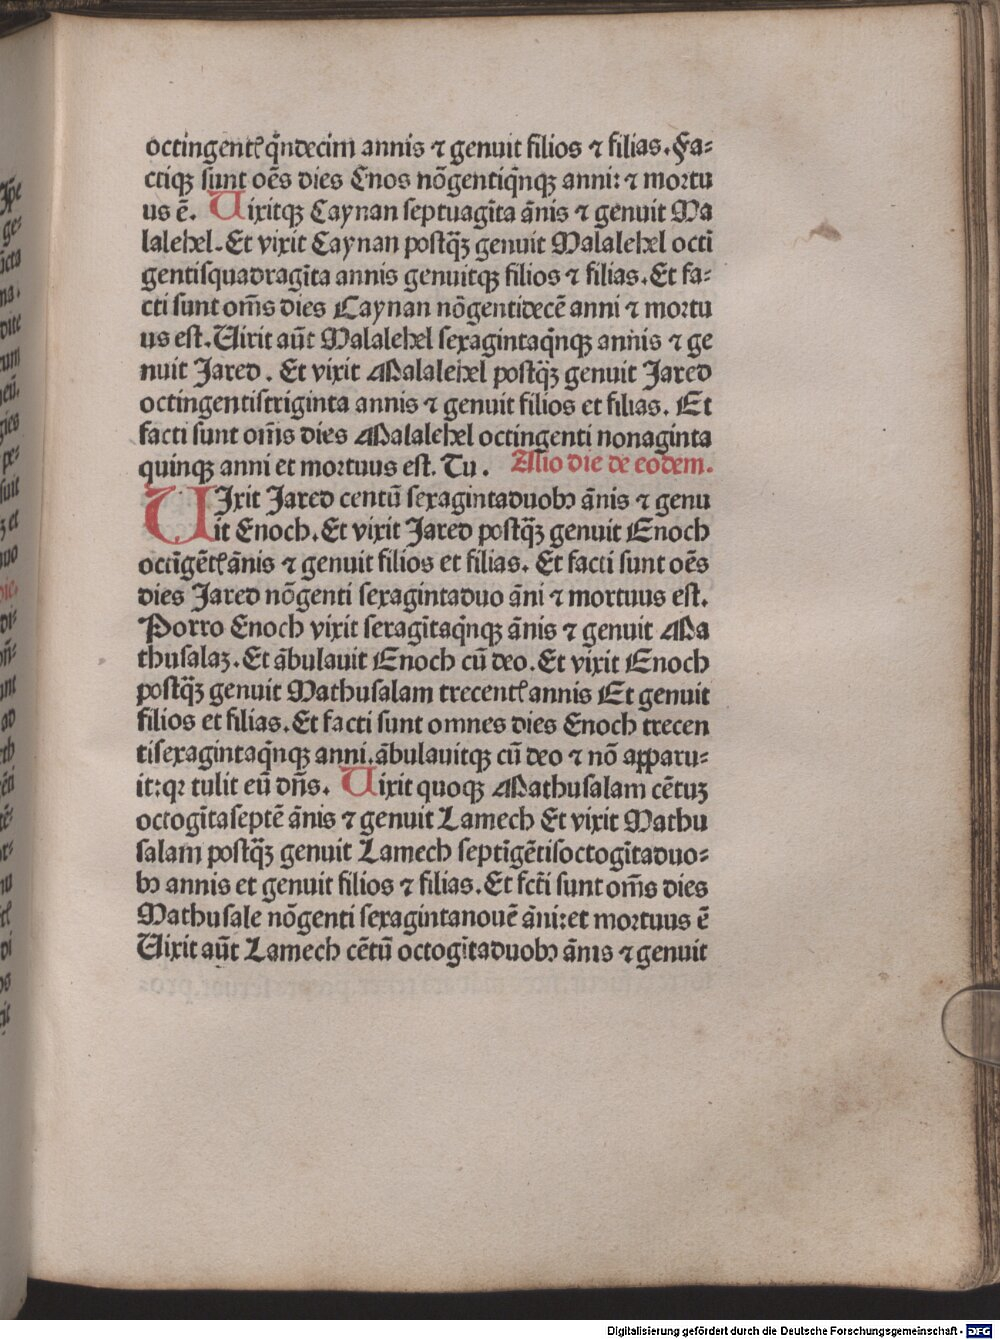 octingentꝭ qͥndecim annis ⁊ genuit filios ⁊ filias. Fa⸗
ctiqꝫ sunt oēs dies Enos nōgentiqͥnqꝫ anni: ⁊ mortu
us ē. Vixitqꝫ Caynan septuagīta ānis ⁊ genuit Ma
lalehel. Et vixit Caynan postqꝫ̄ genuit Malalehel octi
gentisquadragīta annis genuitqꝫ filios ⁊ filias. Et fa⸗
cti sunt om̄s dies Caynan nōgentidecē anni ⁊ mortu
us est. Vixit aūt Malalehel sexagintaqͥnqꝫ annis ⁊ ge
nuit Jared. Et vixit Malalehel postqꝫ̄ genuit Jared
octingentistriginta annis ⁊ genuit filios et filias. Et
facti sunt om̄s dies Malalehel octingenti nonaginta
quinqꝫ anni et mortuus est. Tu. Alio die de eodem.
VJxit Jared centū sexagintaduobꝫ ānis ⁊ genu
it Enoch. Et vixit Jared postqꝫ̄ genuit Enoch
octīgētꝭ ānis ⁊ genuit filios et filias. Et facti sunt oēs
dies Jared nōgenti sexagintaduo āni ⁊ mortuus est.
Porro Enoch vixit sexagītaqͥnqꝫ ānis ⁊ genuit Ma
thusalaꝫ. Et ābulauit Enoch cū deo. Et vixit Enoch
postqꝫ̄ genuit Mathusalam trecentꝭ annis Et genuit
filios et filias. Et facti sunt omnes dies Enoch trecen
tisexagintaqͥnqꝫ anni. ābulauitqꝫ cū deo ⁊ nō apparu⸗
it: qꝛ tulit eū dn̄s. Vixit quoqꝫ Mathusalam cētuꝫ
octogītaseptē ānis ⁊ genuit Lamech Et vixit Mathu
salam postqꝫ̄ genuit Lamech septīgētisoctogītaduo⸗
bꝫ annis et genuit filios ⁊ filias. Et fcti sunt om̄s dies
Mathusale nōgenti sexagintanouē āni: et mortuus ē
Vixit aūt Lamech cētū octogītaduobꝫ ānis ⁊ genuit
Digitalisierung gefördert durch die Deutsche Forschungsgemeinschaft - DFG